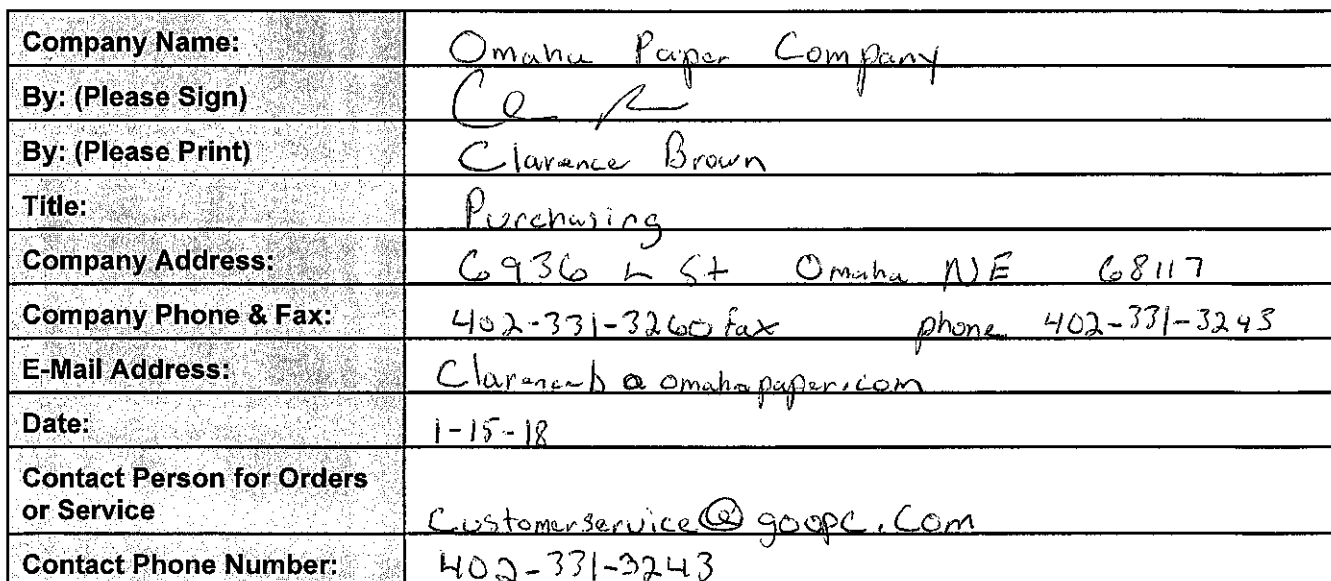 Company Name: Omaha Paper Company
By: (Please Sign)
By: (Please Print) Clarence Brown
Title: Purchasing
Company Address: 6936 L St Omaha NE 68117
Company Phone & Fax: 402-331-3260 fax phone 402-331-3243
E-Mail Address: Clarenceb@omahapaper.com
Date: 1-15-18
Contact Person for Orders
or Service Customerservice@goopc.Com
Contact Phone Number: 402-331-3243